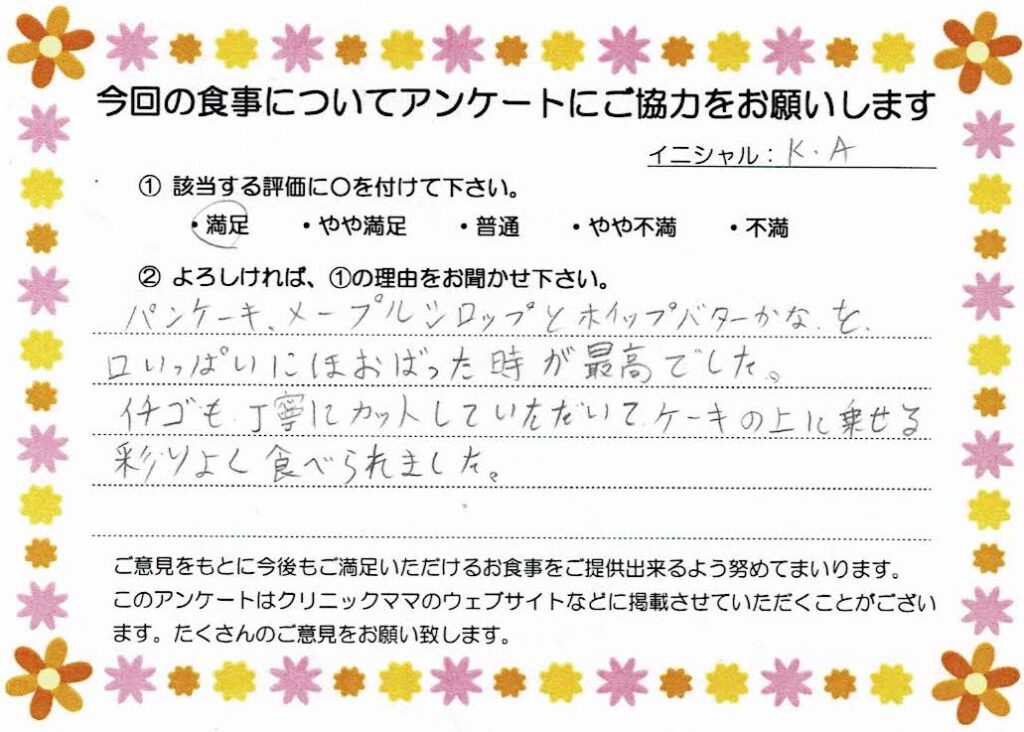 今回の食事についてアンケートにご協力をお願いします
イニシャル：K.A
① 該当する評価に〇を付けて下さい。
・満足 ・やや満足 ・普通 ・やや不満 ・不満
② よろしければ、①の理由をお聞かせ下さい。
パンケーキ、メープルシロップとホイップバターかな、を、
口いっぱいにほおばった時が最高でした。
イチゴも、丁寧にカットしていただいて、ケーキの上に乗せる
彩りよく食べられました。
ご意見をもとに今後もご満足いただけるお食事をご提供出来るよう努めてまいります。
このアンケートはクリニックママのウェブサイトなどに掲載させていただくことがござい
ます。たくさんのご意見をお願い致します。